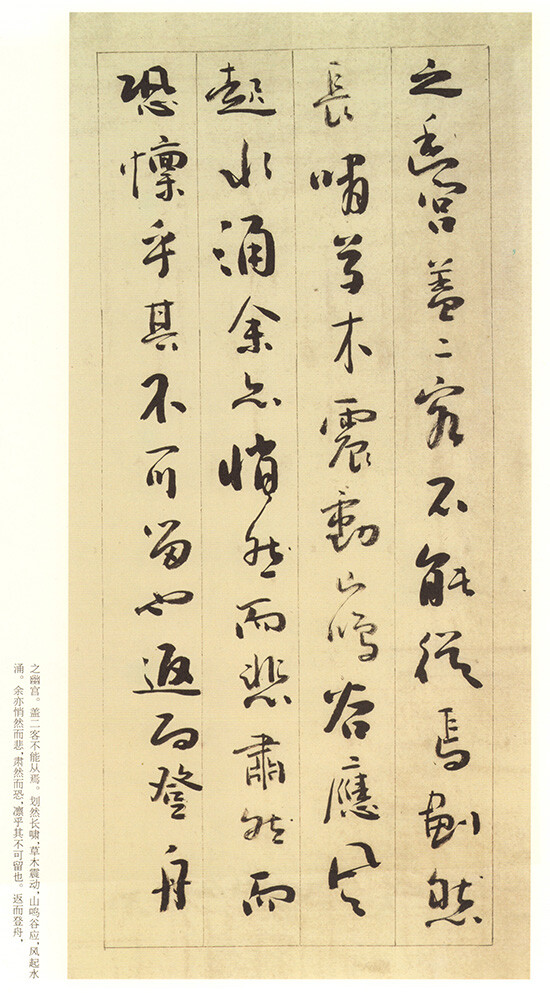 之幽宫盖二客不能従焉劃然
長嘯草木震動山鳴谷應风
起水涌余亦悄然而悲肅然而
恐懔乎其不可留也返而登舟
之幽宫。盖二客不能从焉。划然长啸，草木震动，山鸣谷应，风起水
涌。余亦悄然而悲，肃然而恐，凛乎其不可留也。返而登舟，